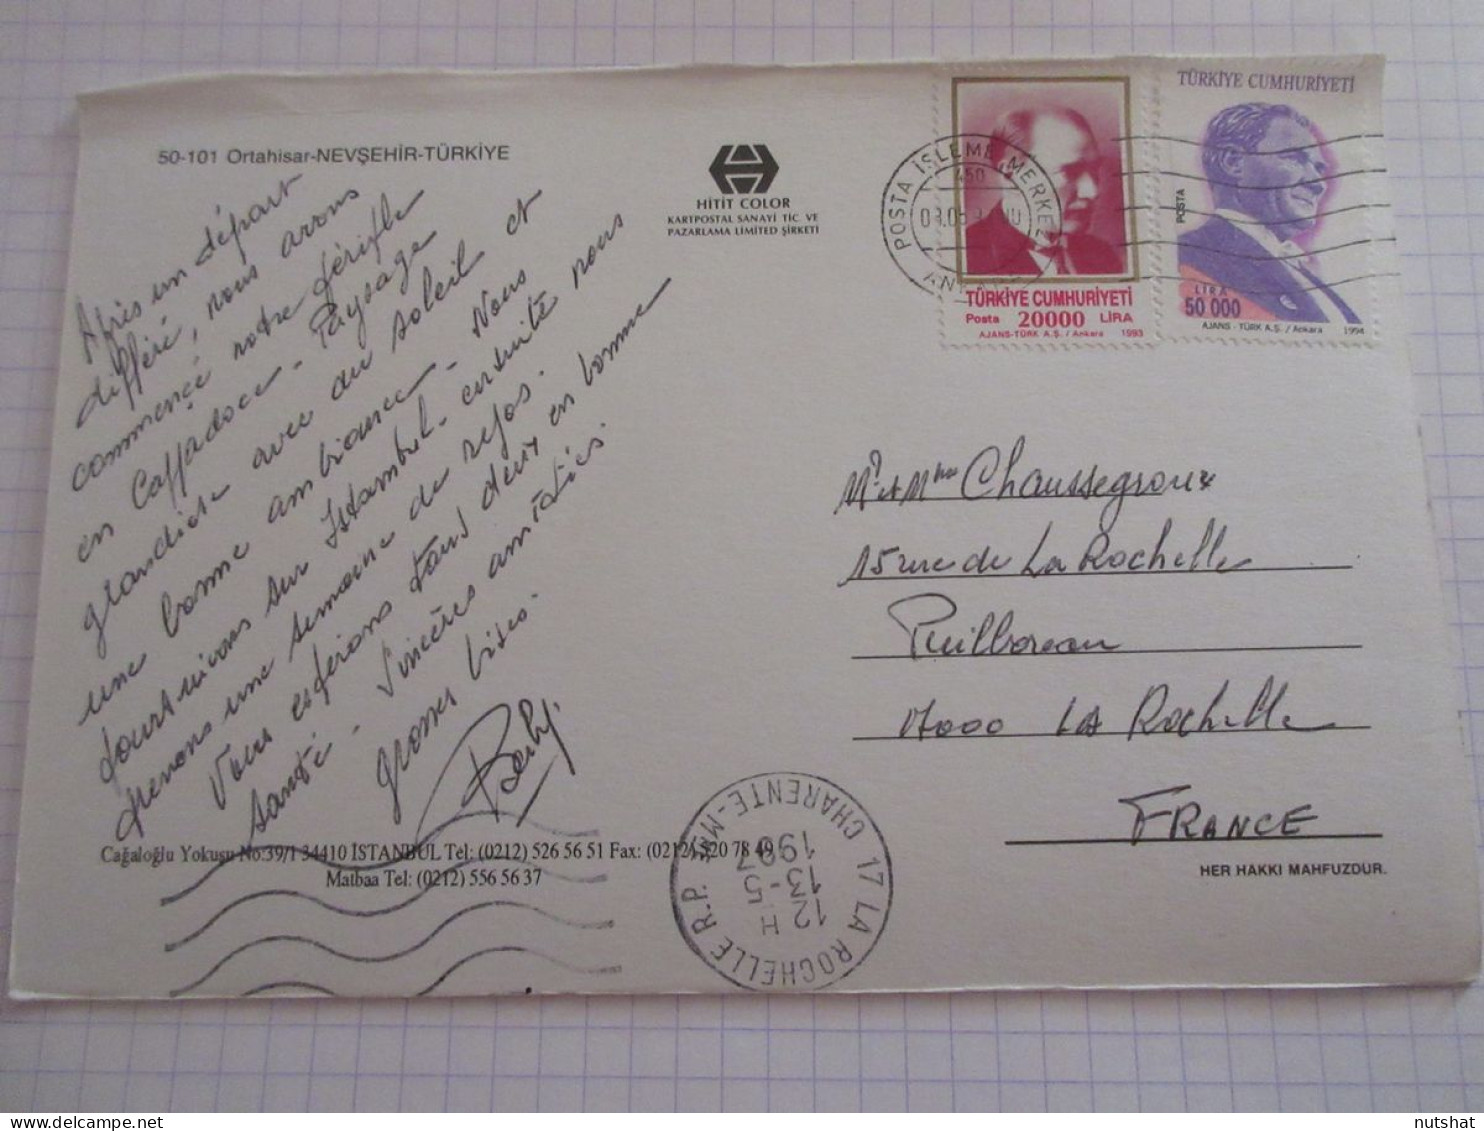 50-101 Ortahisar-NEVŞEHİR-TÜRKİYE
HİTİT COLOR
KARTPOSTAL SANAYİ TİC. VE
PAZARLAMA LIMITED ŞİRKETİ
TÜRKİYE CUMHURİYETİ
Posta 20000 LİRA
AJANS-TÜRK A.Ş. / Ankara 1993
TÜRKİYE CUMHURİYETİ
POSTA
LİRA
50 000
AJANS - TÜRK A.Ş. / Ankara 1994
POSTA İŞLEME MERKEZ
Après un départ
différé, nous avons
commencé notre périple
en Cappadoce - Paysage
grandiose avec du soleil et
une bonne ambiance. Nous
poursuivons sur Istambul - ensuite nous
prenons une semaine de repos.
Vous espérons tous deux en bonne
santé - Sincères amitiés.
grosses bises.
Mr et Mme Chaussegroux
15 rue de La Rochelle
Puilboreau
17000 LA Rochelle
FRANCE
Cağaloğlu Yokuşu No:39/1 34410 İSTANBUL Tel: (0212) 526 56 51 Fax: (0212) 520 78 49
Matbaa Tel: (0212) 556 56 37
HER HAKKI MAHFUZDUR.
17 LA ROCHELLE R.P. CHARENTE-Mme
12 H
13-5
1997
nutshat
delcampe.net